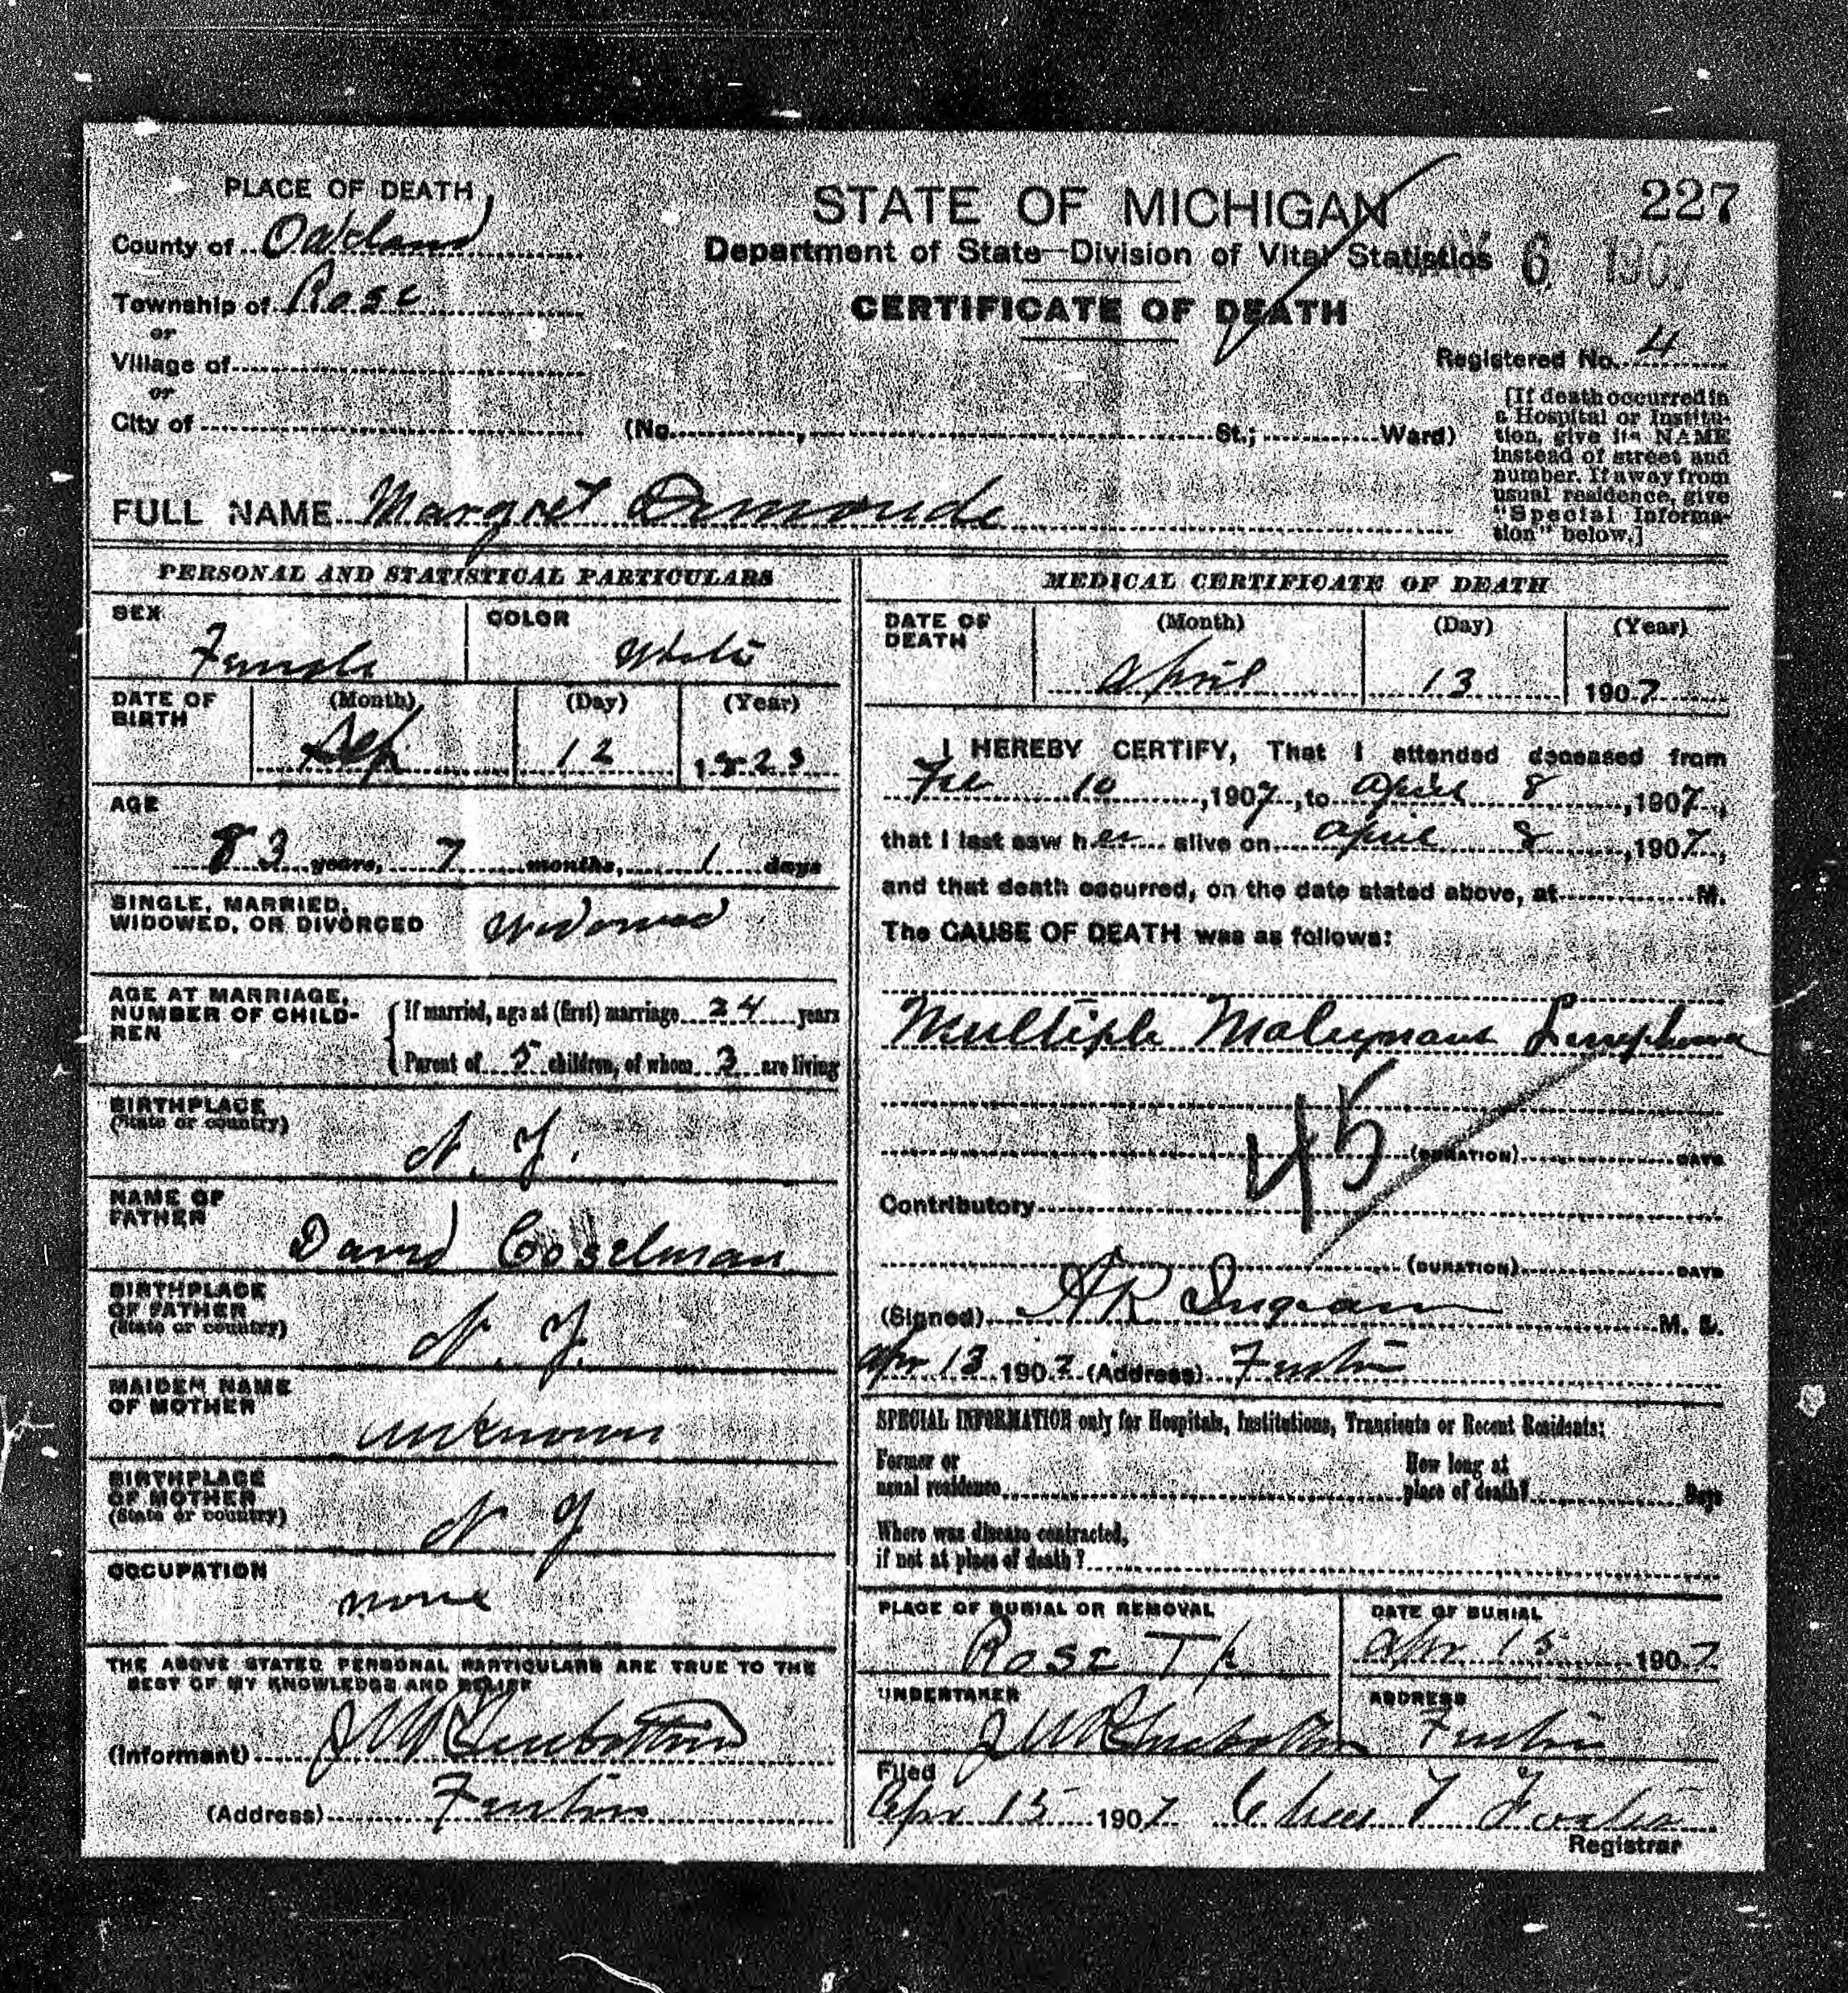 227
PLACE OF DEATH
STATE OF MICHIGAN
County of Oakland
Department of State—Division of Vital Statistics
6 1907
Township of Rose
CERTIFICATE OF DEATH
or
Village of
Registered No. 4
or
City of (No. , St.; Ward)
[If death occurred in
a Hospital or Institu-
tion, give its NAME
instead of street and
number. If away from
usual residence, give
"Special Informa-
tion" below.]
FULL NAME Margret
PERSONAL AND STATISTICAL PARTICULARS
SEX Female
COLOR White
DATE OF BIRTH (Month) Sep (Day) 12 (Year) 1823
AGE
83 years, 7 months, 1 days
SINGLE, MARRIED,
WIDOWED, OR DIVORCED Widowed
AGE AT MARRIAGE,
NUMBER OF CHILD-
REN
If married, age at (first) marriage 24 years
Parent of 5 children, of whom 3 are living
BIRTHPLACE
(State or country)
N. J.
NAME OF
FATHER
David Coselman
BIRTHPLACE
OF FATHER
(State or country)
N. J.
MAIDEN NAME
OF MOTHER
unknown
BIRTHPLACE
OF MOTHER
(State or country)
N J
OCCUPATION
none
THE ABOVE STATED PERSONAL PARTICULARS ARE TRUE TO THE
BEST OF MY KNOWLEDGE AND BELIEF
(Informant)
(Address) Fenton
MEDICAL CERTIFICATE OF DEATH
DATE OF DEATH (Month) April (Day) 13 (Year) 1907
I HEREBY CERTIFY, That I attended deceased from
Feb 10, 1907, to April 8, 1907,
that I last saw her alive on April 8, 1907,
and that death occurred, on the date stated above, at M.
The CAUSE OF DEATH was as follows:
Multiple Malignant
45
(DURATION) DAYS
Contributory
(DURATION) DAYS
(Signed) A R Ingram M. D.
Apr 13 1907 (Address) Fenton
SPECIAL INFORMATION only for Hospitals, Institutions, Transients or Recent Residents:
Former or
usual residence
How long at
place of death? Days
Where was disease contracted,
if not at place of death?
PLACE OF BURIAL OR REMOVAL
Rose Tp
DATE OF BURIAL
Apr 15 1907
UNDERTAKER
ADDRESS
Fenton
Filed
Apr 15 1907
Registrar